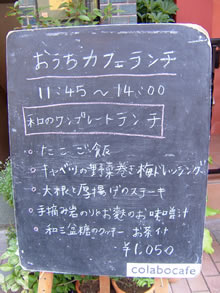 おうちカフェランチ
11:45～14:00
和のワンプレートランチ
○たこご飯
○キャベツの野菜巻き梅ドレッシング
○大根と厚揚げのステーキ
○手摘み岩のりとお麩のお味噌汁
○和三盆糖のクッキー お茶付
¥1,050
colabocafe